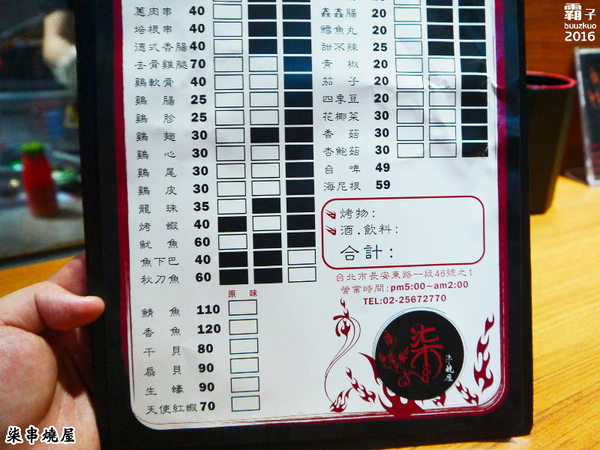 蔥肉串 40
培根串 40
德式香腸 40
去骨雞腿 70
雞軟骨 40
雞腸 25
雞胗 25
雞翅 30
雞心 30
雞尾 30
雞皮 30
龍珠 35
烤蝦 40
魷魚 60
魚下巴 40
秋刀魚 60
原味
鯖魚 110
香魚 120
干貝 80
扇貝 90
生蠔 90
天使紅蝦 70
鑫鑫腸 20
鱈魚丸 20
甜不辣 25
青椒 20
茄子 20
四季豆 20
花椰菜 30
香菇 30
杏鮑菇 30
台啤 49
海尼根 59
烤物:
酒.飲料:
合計:
台北市長安東路一段46號之1
營業時間:pm5:00~am2:00
TEL:02-25672770
柒
串燒屋
霸子
buuzkuo
2016
柒串燒屋